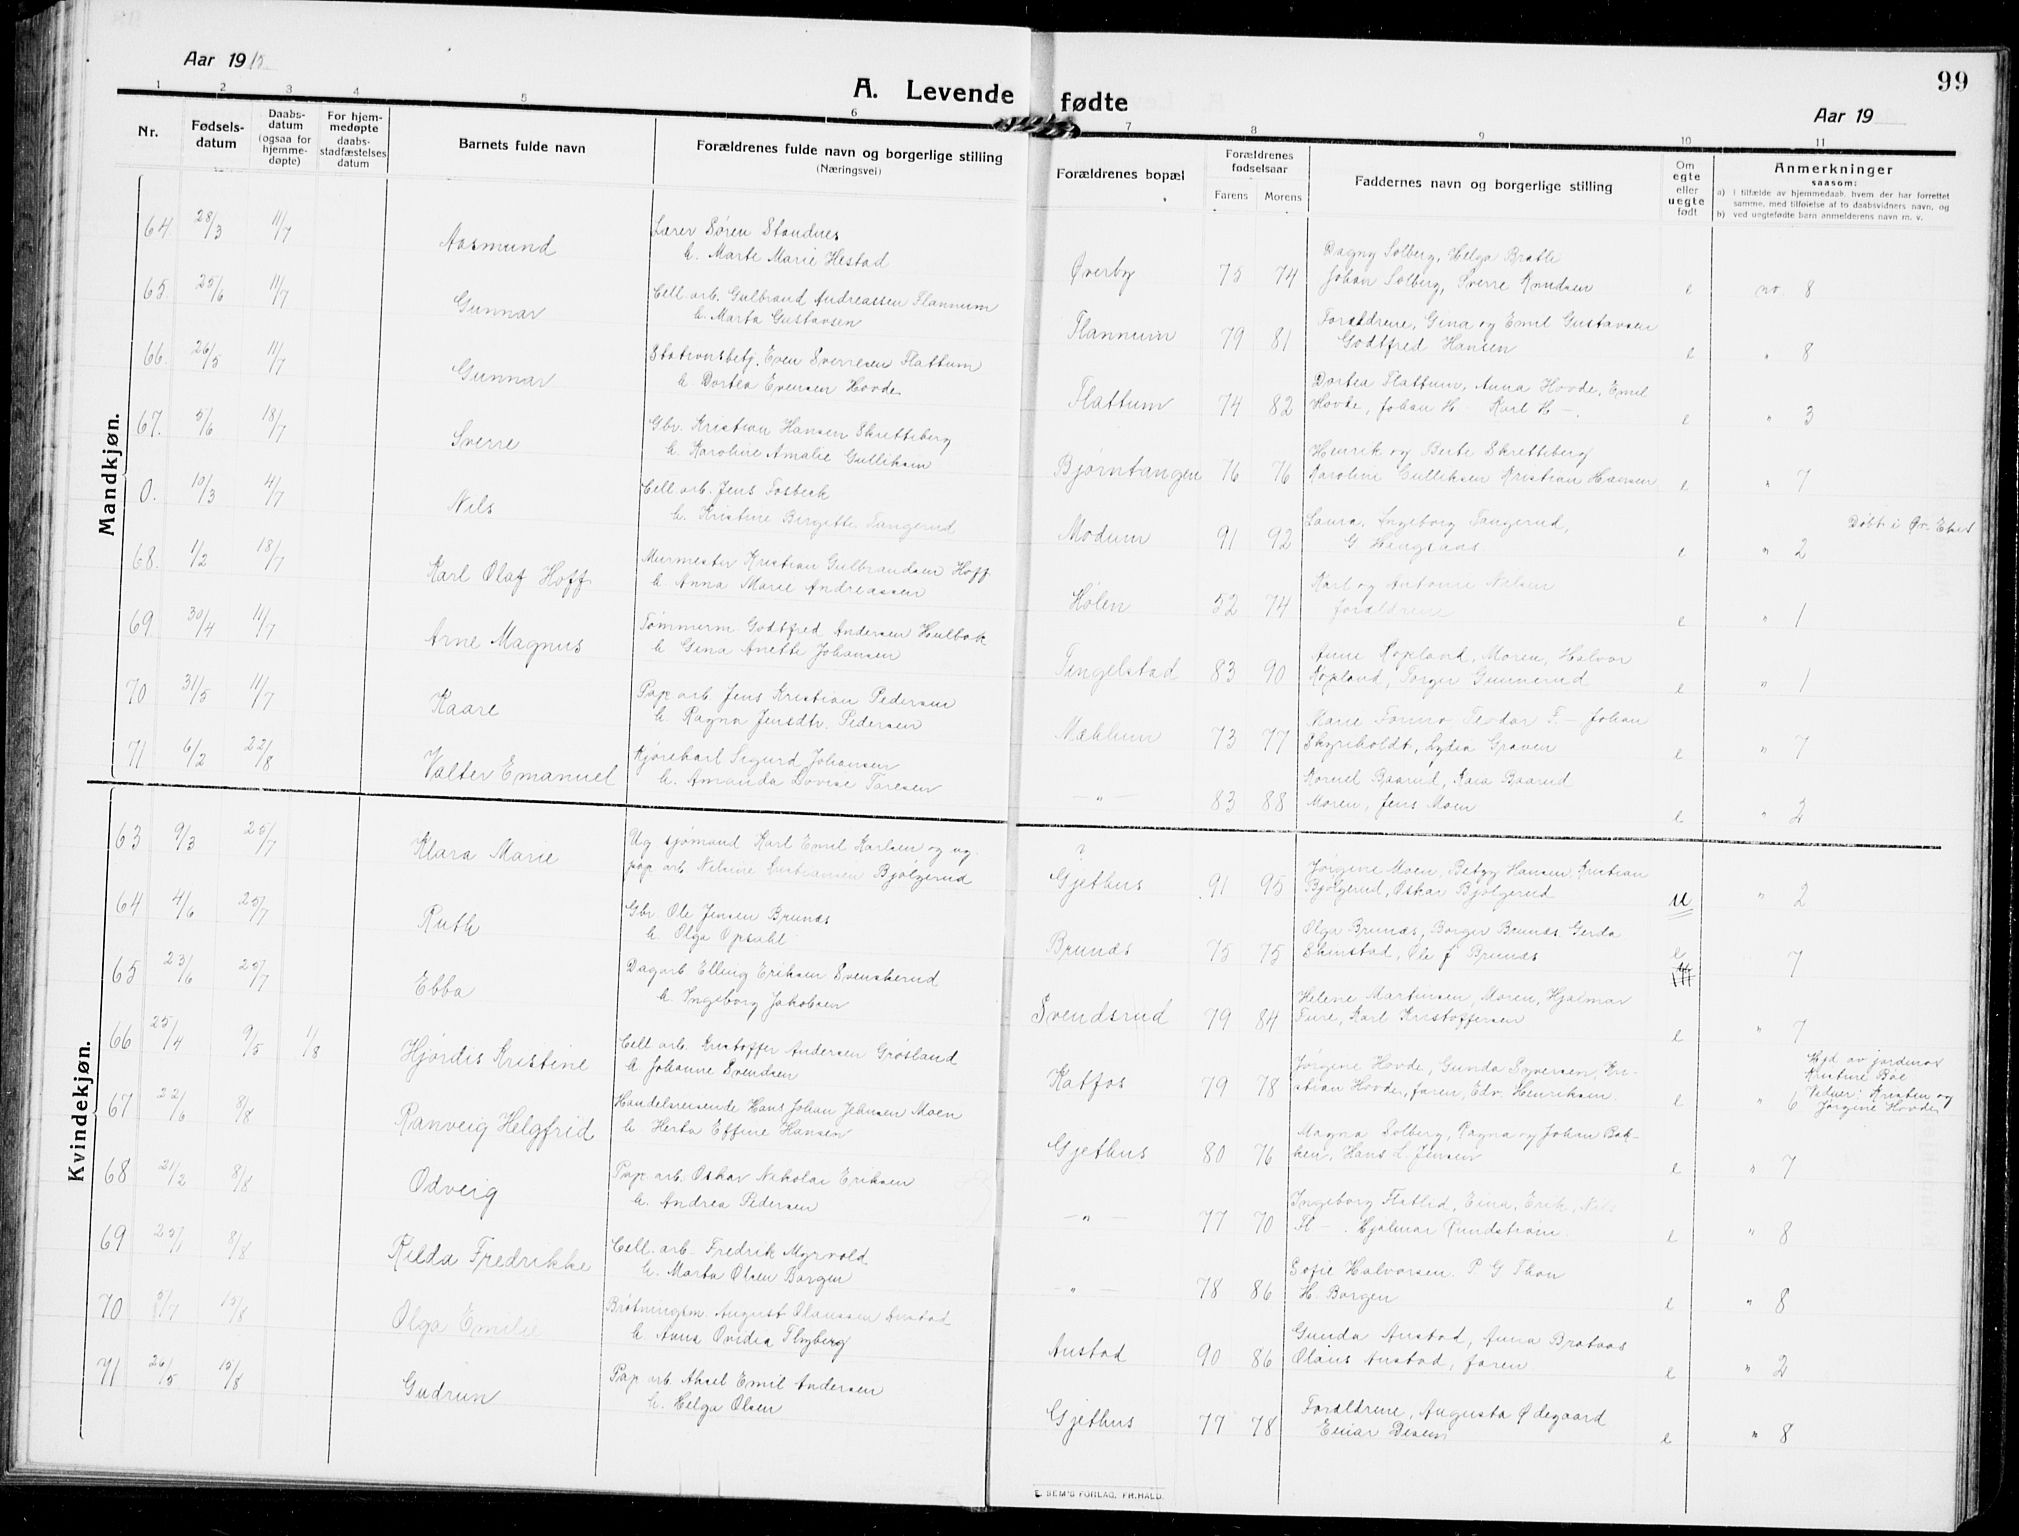 Aar 1915.
A. Levende fødte
99
Aar 19
1 2 3 4 5 6 7 8 9 10 11
Nr.
Fødsels-
datum
Daabs-
datum
(ogsaa for
hjemme-
døpte)
For hjem-
medøpte
daabs-
stadfæstelses
datum
Barnets fulde navn
Forældrenes fulde navn og borgerlige stilling
(Næringsvei)
Forældrenes bopæl
Forældrenes
fødselsaar
Farens Morens
Faddernes navn og borgerlige stilling
Om
egte
eller
uegte
født
Anmerkninger
saasom:
a) I tilfælde av hjemmedaab, hvem der har forrettet
samme, med tilføielse af to daabsvidners navn, og
b) ved uegtefødte barn anmelderens navn m. v.
Mandkjøn.
64. 28/3 11/7 Aasmund
Lærer Søren Standnes
h. Marte Marie Hestad
Øverby 75 74
Dagny Solberg, Helga Bratli
Johan Solberg, Sverre Knudsen
e no 8
65. 25/6 11/7 Gunnar
Cell. arb. Gulbrand Andreassen Flannum
h. Marta Gustavsen
Flannum 79 81
Forældrene, Gina og Emil Gustavsen
Godtfred Hansen
e " 8
66. 26/5 11/7 Gunnar
Stationsbetj. Even Sverresen Flattum
h. Dortea Evensen Hovde
Flattum 74 82
Dortea Flattum, Anna Hovde, Emil
Hovde, Johan H. - Karl H -.
e " 3
67. 5/6 18/7 Sverre
Gbr. Kristian Hansen Skretteberg
h. Karoline Amalie Gulliksen
Bjørntangen 76 76
Henrik og Berte Skretteberg
Karoline Gulliksen Kristian Hansen
e " 7
0. 10/3 4/7 Nils
Cell. arb. Jens Fosbæk
h. Kristine Bergitte Tangerud
Modum 91 92
Laura, Ingeborg Tangerud,
G Hengsaas.
e " 2
Døbt i Øv. Eker
68. 1/2 18/7 Karl Olaf Hoff
Murmester Kristian Gulbrandsen Hoff
h. Anna Marie Andreassen
Holen 52 74
Karl og Antonie Nilsen
forældrene
e " 1
69 30/4 11/7 Arne Magnus
Tømmerm. Godtfred Andersen Hulbak
h Gina Anette Johansen
Tingelstad 83 90
Anne Kopland, Moren, Halvor
Kopland, Torger Gunnerud
e " 1
70 31/5 11/7 Kaare
Pap. arb. Jens Kristian Pedersen
h. Ragna Jensdtr. Pedersen
Mælum 73 77
Marie Formo Teodor F. - Johan
Skyriboldt, Lydia Graven
e " 7
71 6/2 22/8 Valter Emanuel
Kjørekarl Sigurd Johansen
h. Amanda Lovise Toresen
- " - 83 88
Kornel Baarud, Kaia Baarud
Moren, Jens Moen
e " 2
Kvindekjøn.
63 9/3 25/7 Klara Marie
Ug sjømand Karl Emil Karlsen og ug.
pap arb. Nelsine Kristiansen Bjølgerud
?
Gjethus 91 95
Jørgine Moen, Betzy Hansen, Kristian
Bjølgerud, Oskar Bjølgerud
u " 2
64 4/6 25/7 Ruth
Gbr. Ole Jensen Brunæs
h. Olga Opsahl
Brunæs 75 75
Olga Brunæs, Borger Brunæs Gerda
Skinstad, Ole J Brunæs
e 7
65 23/6 25/7 Ebba
Dagarb Elling Eriksen Svenskerud
h. Ingeborg Jakobsen
Svendsrud 79 84
Helene Martinsen, Moren, Hjalmar
Ture, Karl Kristoffersen
e " 7
66 25/4 9/5 1/8 Hjørdis Kristine
Cell. arb. Kristoffer Andersen Grøsland
h Johanne Svendsen
Katfos 79 78
Jørgine Hovde, Gunda Syversen, Kri-
stian Hovde, faren, Edv. Henriksen
e " 6
Hjd av jordmor
Kristine Bøe
Vidner: Kristen og
Jørgine Hovde
67 22/6 8/8 Ranveig Helgfrid
Handelsreisende Hans Johan Jensen Moen
h. Herta Effine Hansen
Gjethus 80 76
Magna Solberg, Ragna og Johan Bak-
ken, Hans L. Jensen
e " 7
68 21/2 8/8 Odveig
Pap. arb. Oskar Nikolai Eriksen
h. Andrea Pedersen
- " - 77 70
Ingeborg Flatlid, Eina, Erik, Nils
Fl - . Hjalmar Rundstrøm
e " 8
69 25/1 8/8 Rilda Fredrikke
Cell. arb. Fredrik Myrvold
h. Marta Olsen Borgen
- " - 78 86
Sofie Halvorsen. P G Thon
H. Borgen
e " 8
70 5/7 15/8 Olga Emilie
Brøtningsm. August Olaussen Anstad
h. Anna Ovidia Flyberg
Anstad 90 86
Gunda Anstad, Anna Brataas
Olaus Anstad, faren
e " 2
71 26/5 15/8 Gudrun
Pap. arb. Aksel Emil Andersen
h. Helga Olsen
Gjethus 77 78
Forældrene, Augusta Ødegaard
Einar Disen
e " 8
E. SEM'S FORLAG, FR.HALD.